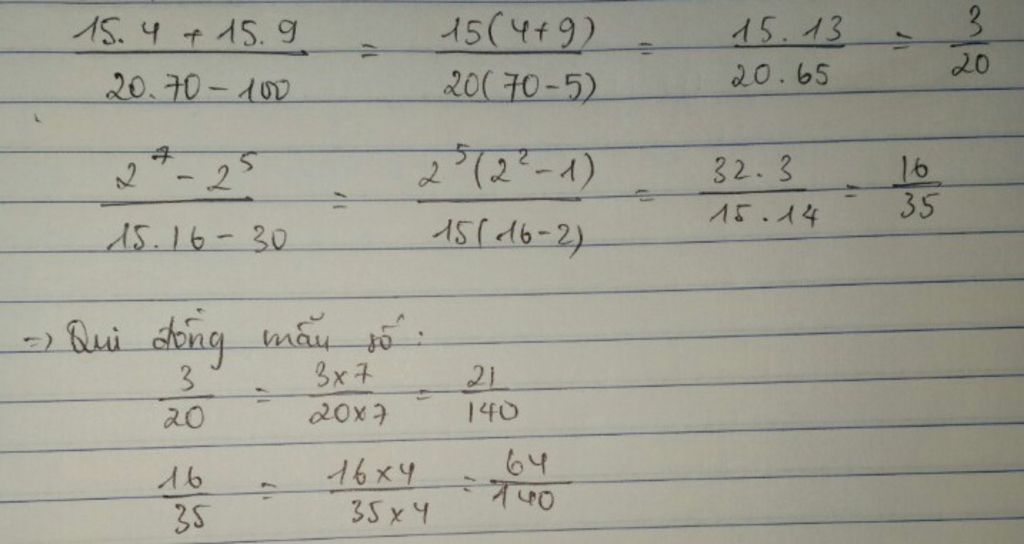 15.4 + 15.9 / 20.70 - 100 = 15(4+9) / 20(70-5) = 15.13 / 20.65 = 3/20
2^7 - 2^5 / 15.16 - 30 = 2^5(2^2-1) / 15(16-2) = 32.3 / 15.14 = 16/35
=> Qui đồng mẫu số:
3/20 = 3x7 / 20x7 = 21/140
16/35 = 16x4 / 35x4 = 64/140